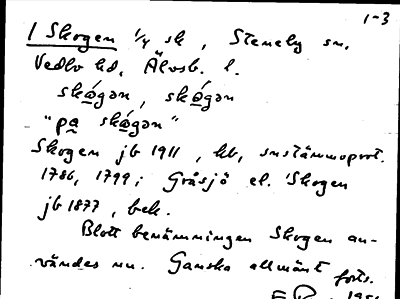 1-3
/ Skogen 1/4 sk, Steneby sn.
Vedbo hd, Älvsb. l.
skǿgən, skǿgən
"pa skǿgən"
Skogen jb 1911, kb, snstämmoprot.
1786, 1799; Gråsjö el. Skogen
jb 1877, bek.
Blott benämningen Skogen an-
vändes nu. Ganska allmänt forts.